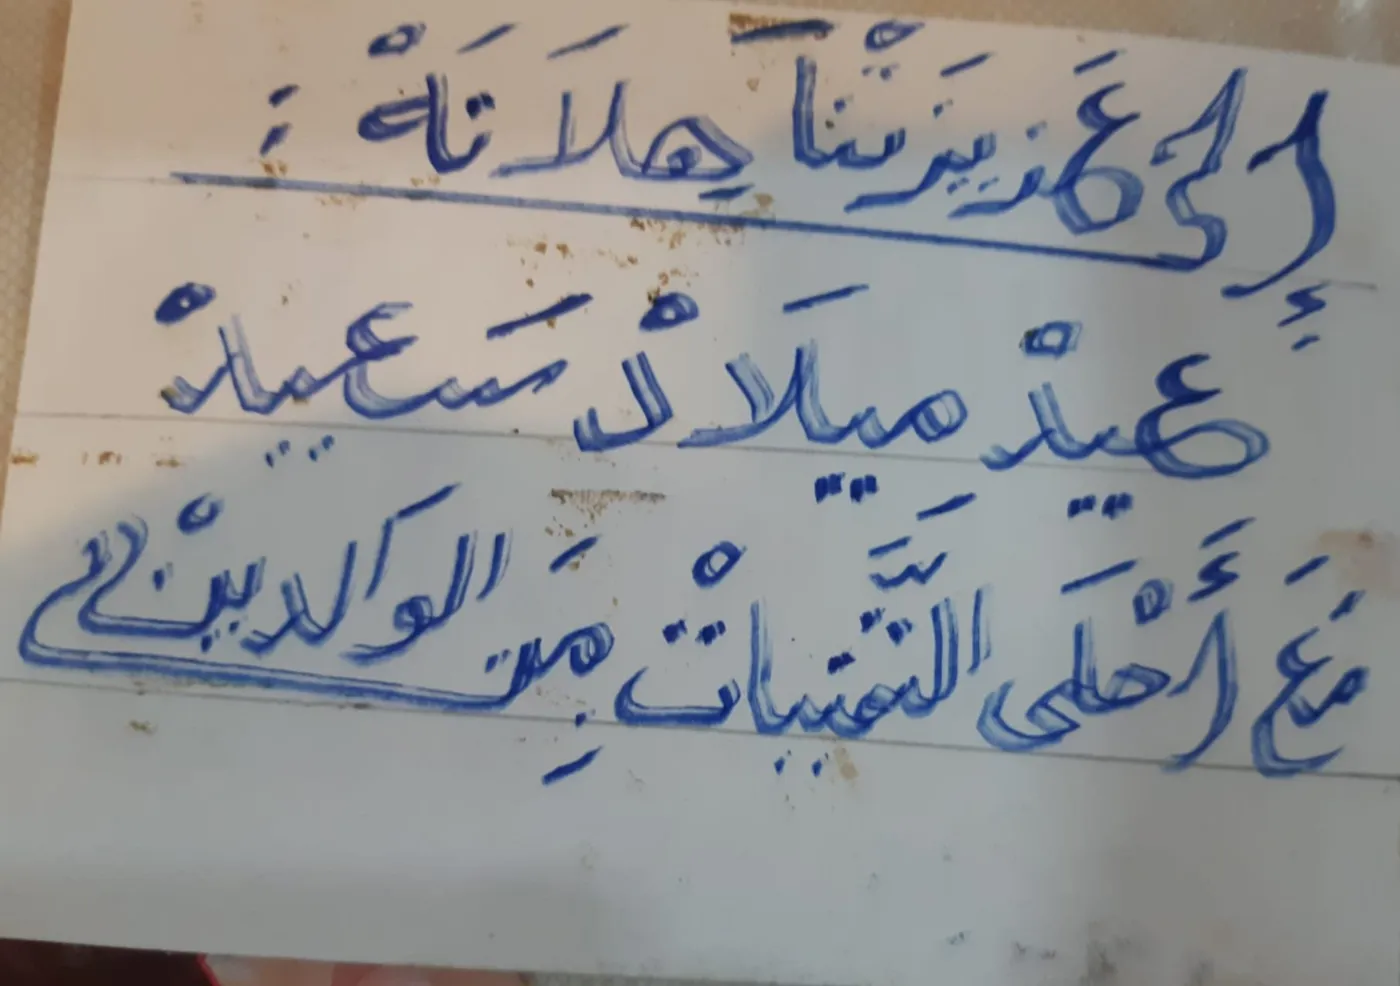 إِلَى عَزِيزَتْنَا هِلَانَةْ :
عِيدْ مِيلَادْ سَعِيدْ
مَعَ أَحْلَى التَّمَنِّيَاتْ مِنَ الوَالِدَيْنْ